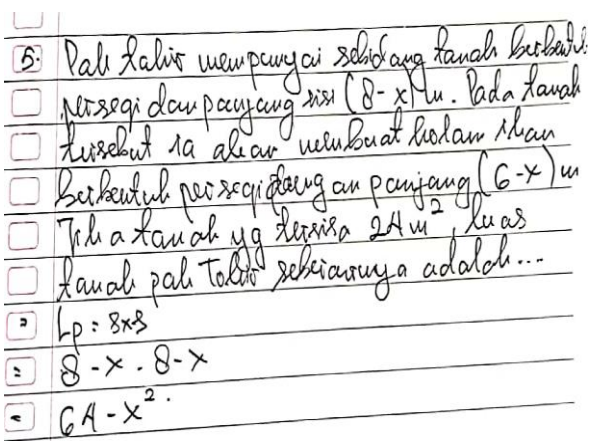 5. Pak Tahir mempunyai sebidang tanah berbentuk
persegi dan panjang sisi (8-x) m. Pada tanah
tersebut ia akan membuat kolam ikan
berbentuk persegi dengan panjang (6-x) m
Jika tanah yg tersisa 24 m², luas
tanah pak Tahir sebenarnya adalah...
= Lp : s×s
= 8 - x . 8 - x
= 64 - x².